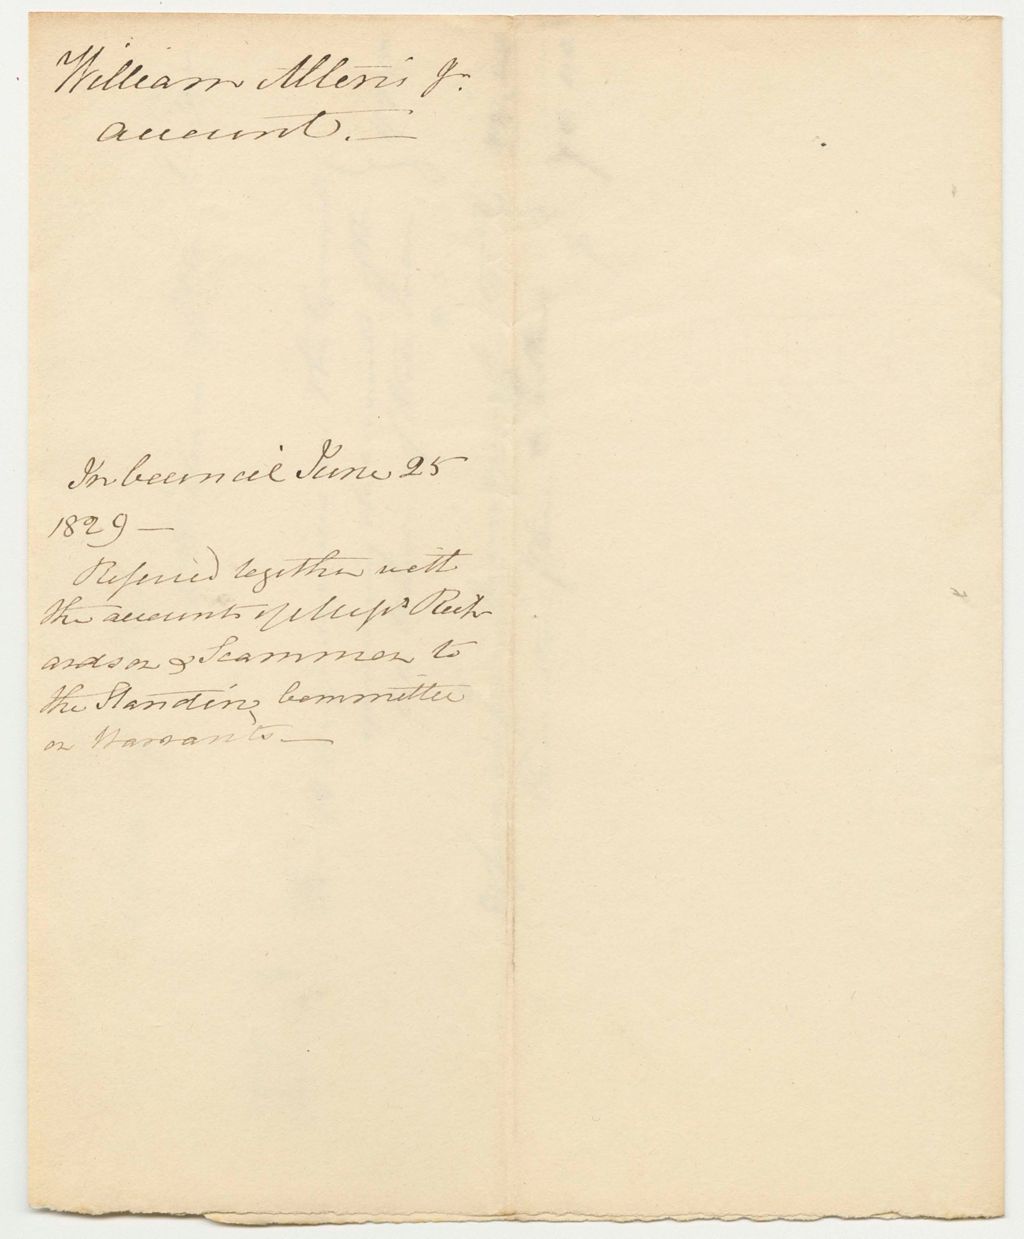 William Allen's Jr.
account. —
In Council June 25
1829 —
Referred together with
the accounts of Mess.rs Rich-
ardson & Scammon to
the Standing Committee
on Warrants —